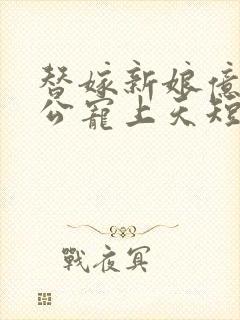 替嫁新娘億
公寵上天短
戰夜冥